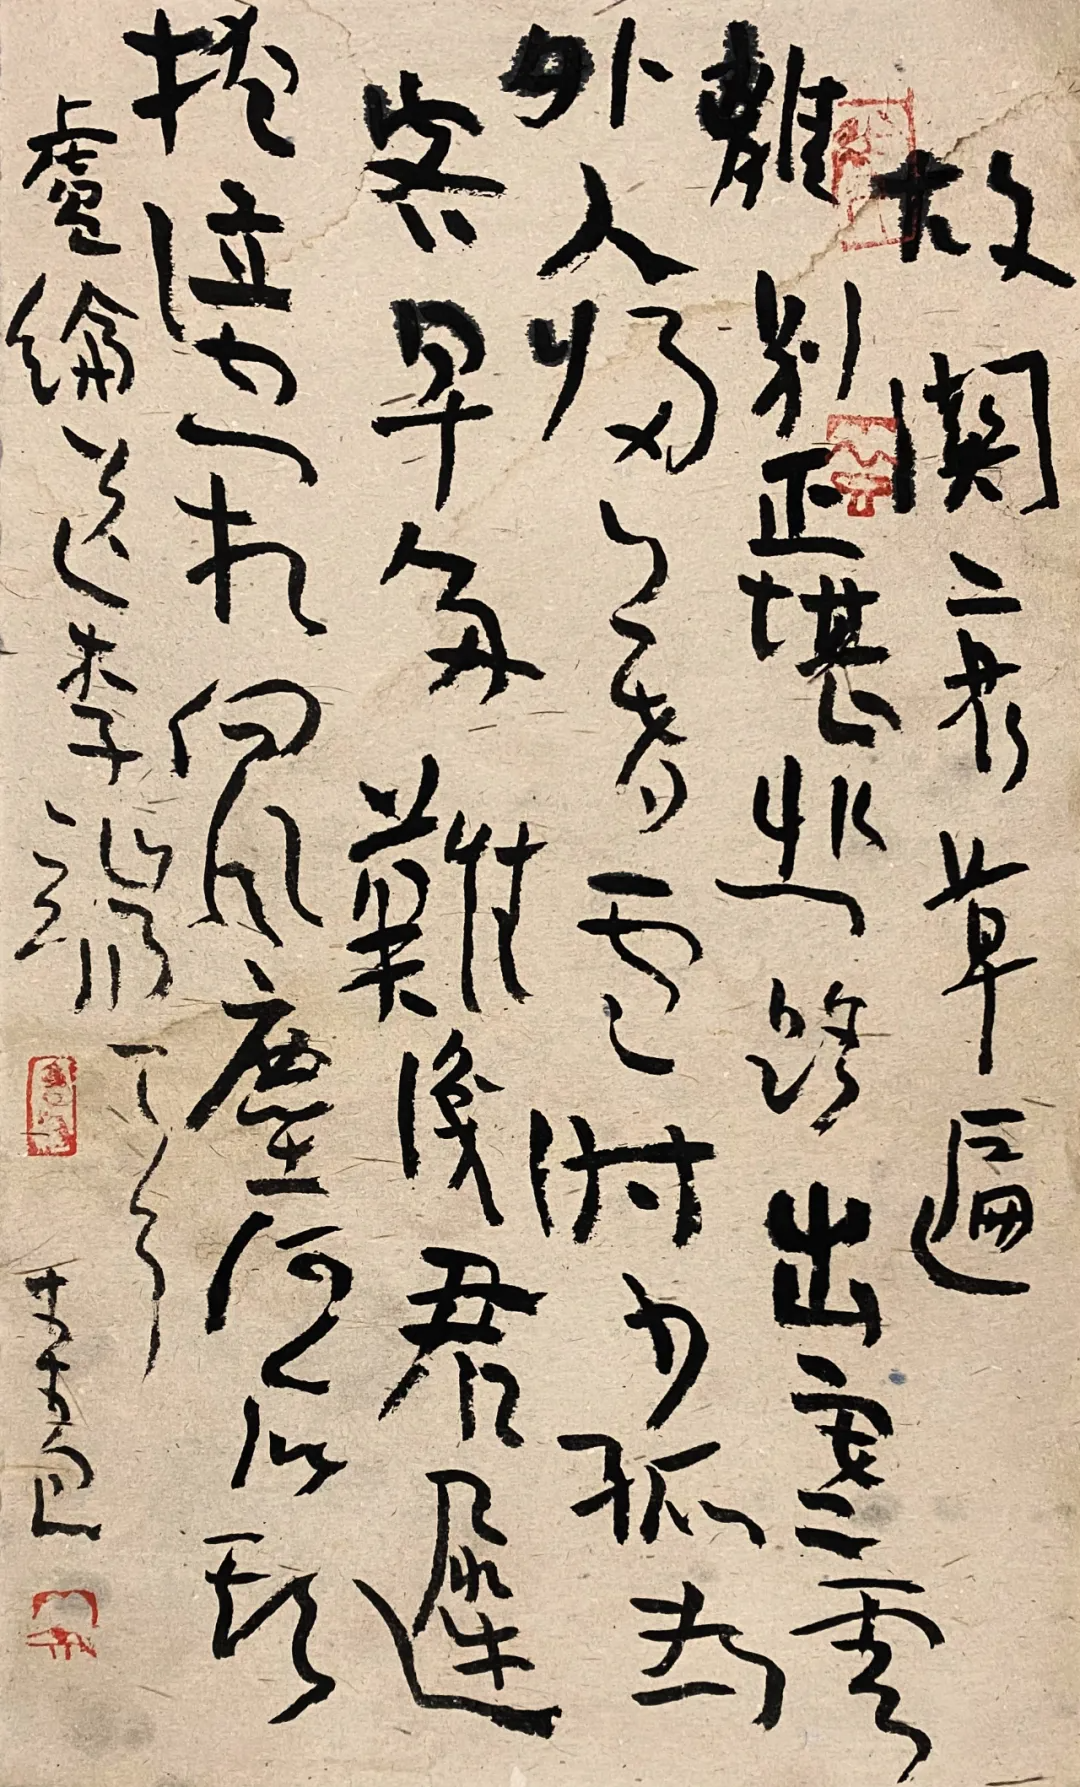 故關衰草遍
離別正堪悲路出寒雲
外人歸暮雪时少孤為
客早多難識君遲
掩泣空相向風塵何所期
盧綸送李端